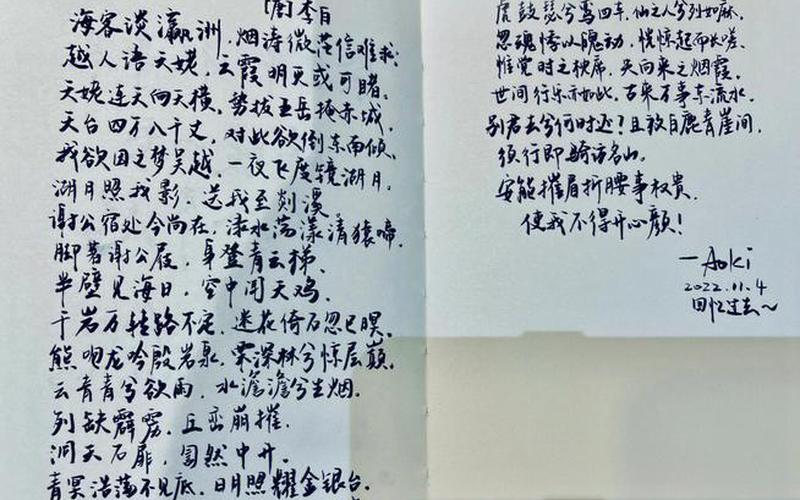 [唐]李白
海客谈瀛洲,烟涛微茫信难求;
越人语天姥,云霞明灭或可睹。
天姥连天向天横,势拔五岳掩赤城。
天台四万八千丈,对此欲倒东南倾。
我欲因之梦吴越,一夜飞度镜湖月。
湖月照我影,送我至剡溪。
谢公宿处今尚在,渌水荡漾清猿啼。
脚著谢公屐,身登青云梯。
半壁见海日,空中闻天鸡。
千岩万转路不定,迷花倚石忽已暝。
熊咆龙吟殷岩泉,栗深林兮惊层巅。
云青青兮欲雨,水澹澹兮生烟。
列缺霹雳,丘峦崩摧。
洞天石扉,訇然中开。
青冥浩荡不见底,日月照耀金银台。
虎鼓瑟兮鸾回车,仙之人兮列如麻。
忽魂悸以魄动,恍惊起而长嗟。
惟觉时之枕席,失向来之烟霞。
世间行乐亦如此,古来万事东流水。
别君去兮何时还?且放白鹿青崖间,
须行即骑访名山。
安能摧眉折腰事权贵,
使我不得开心颜!
—Aoki
2022.11.4
回忆过去~